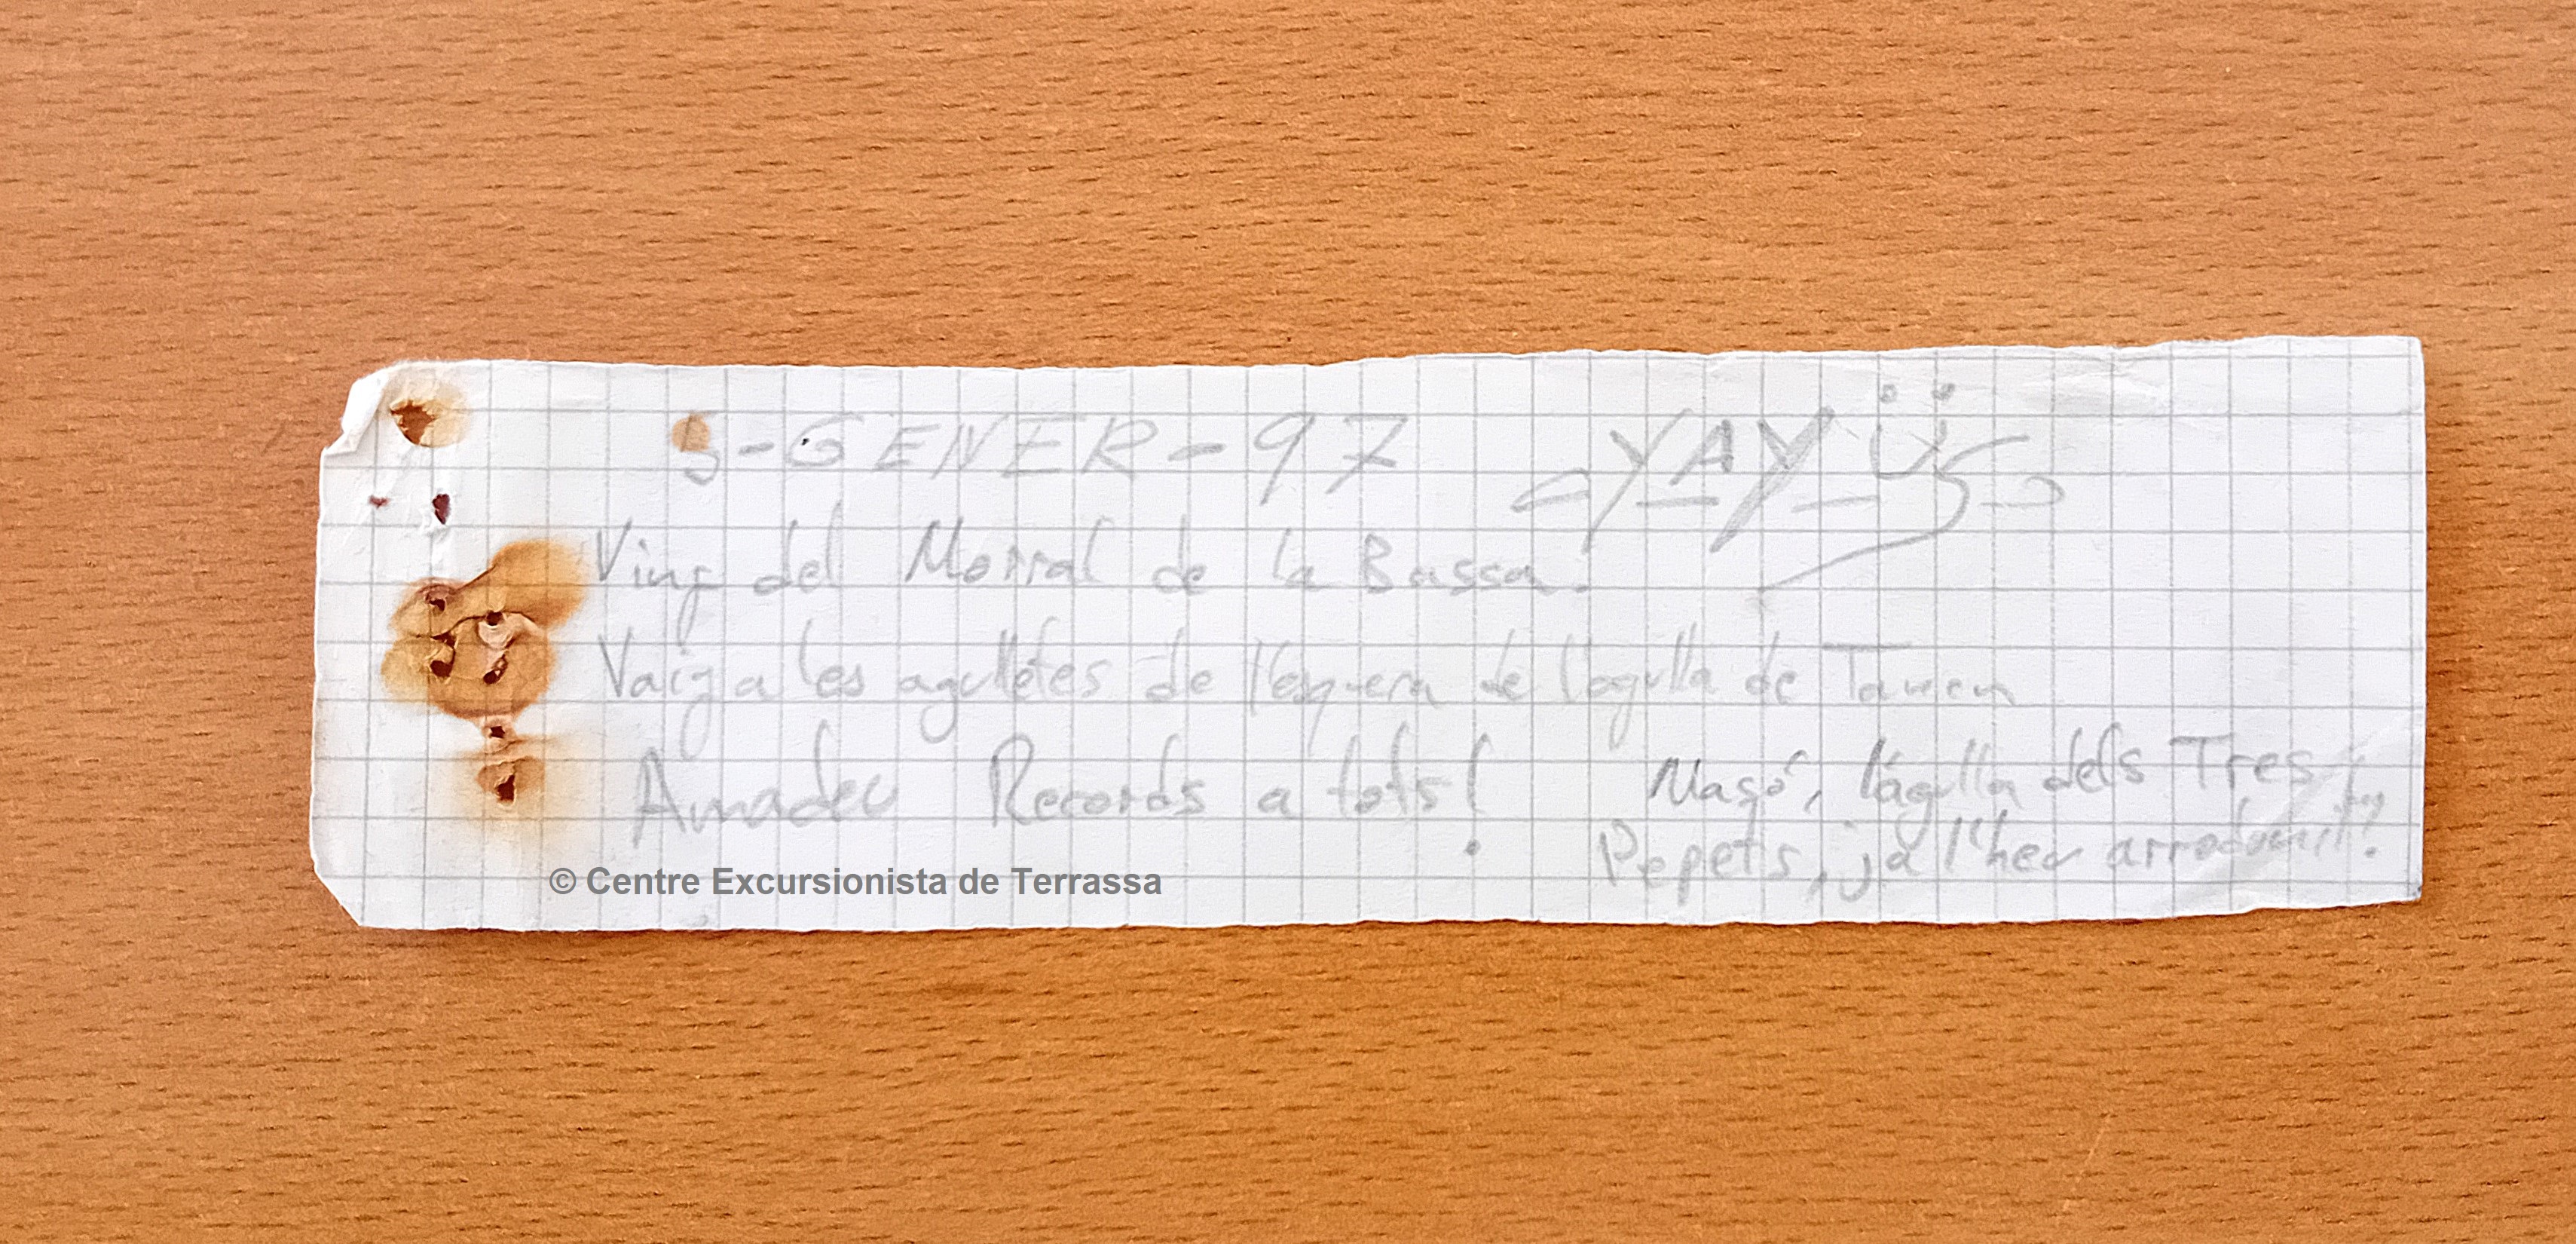 5-GENER-97 YAYÜS
Ving del Morral de la Bassa.
Vaig a les agulletes de l'esquena de l'agulla de
Amadeu Records a tots!
Masó, l'agulla dels Tres
Pepets, ja l'heu arrodonit?
© Centre Excursionista de Terrassa